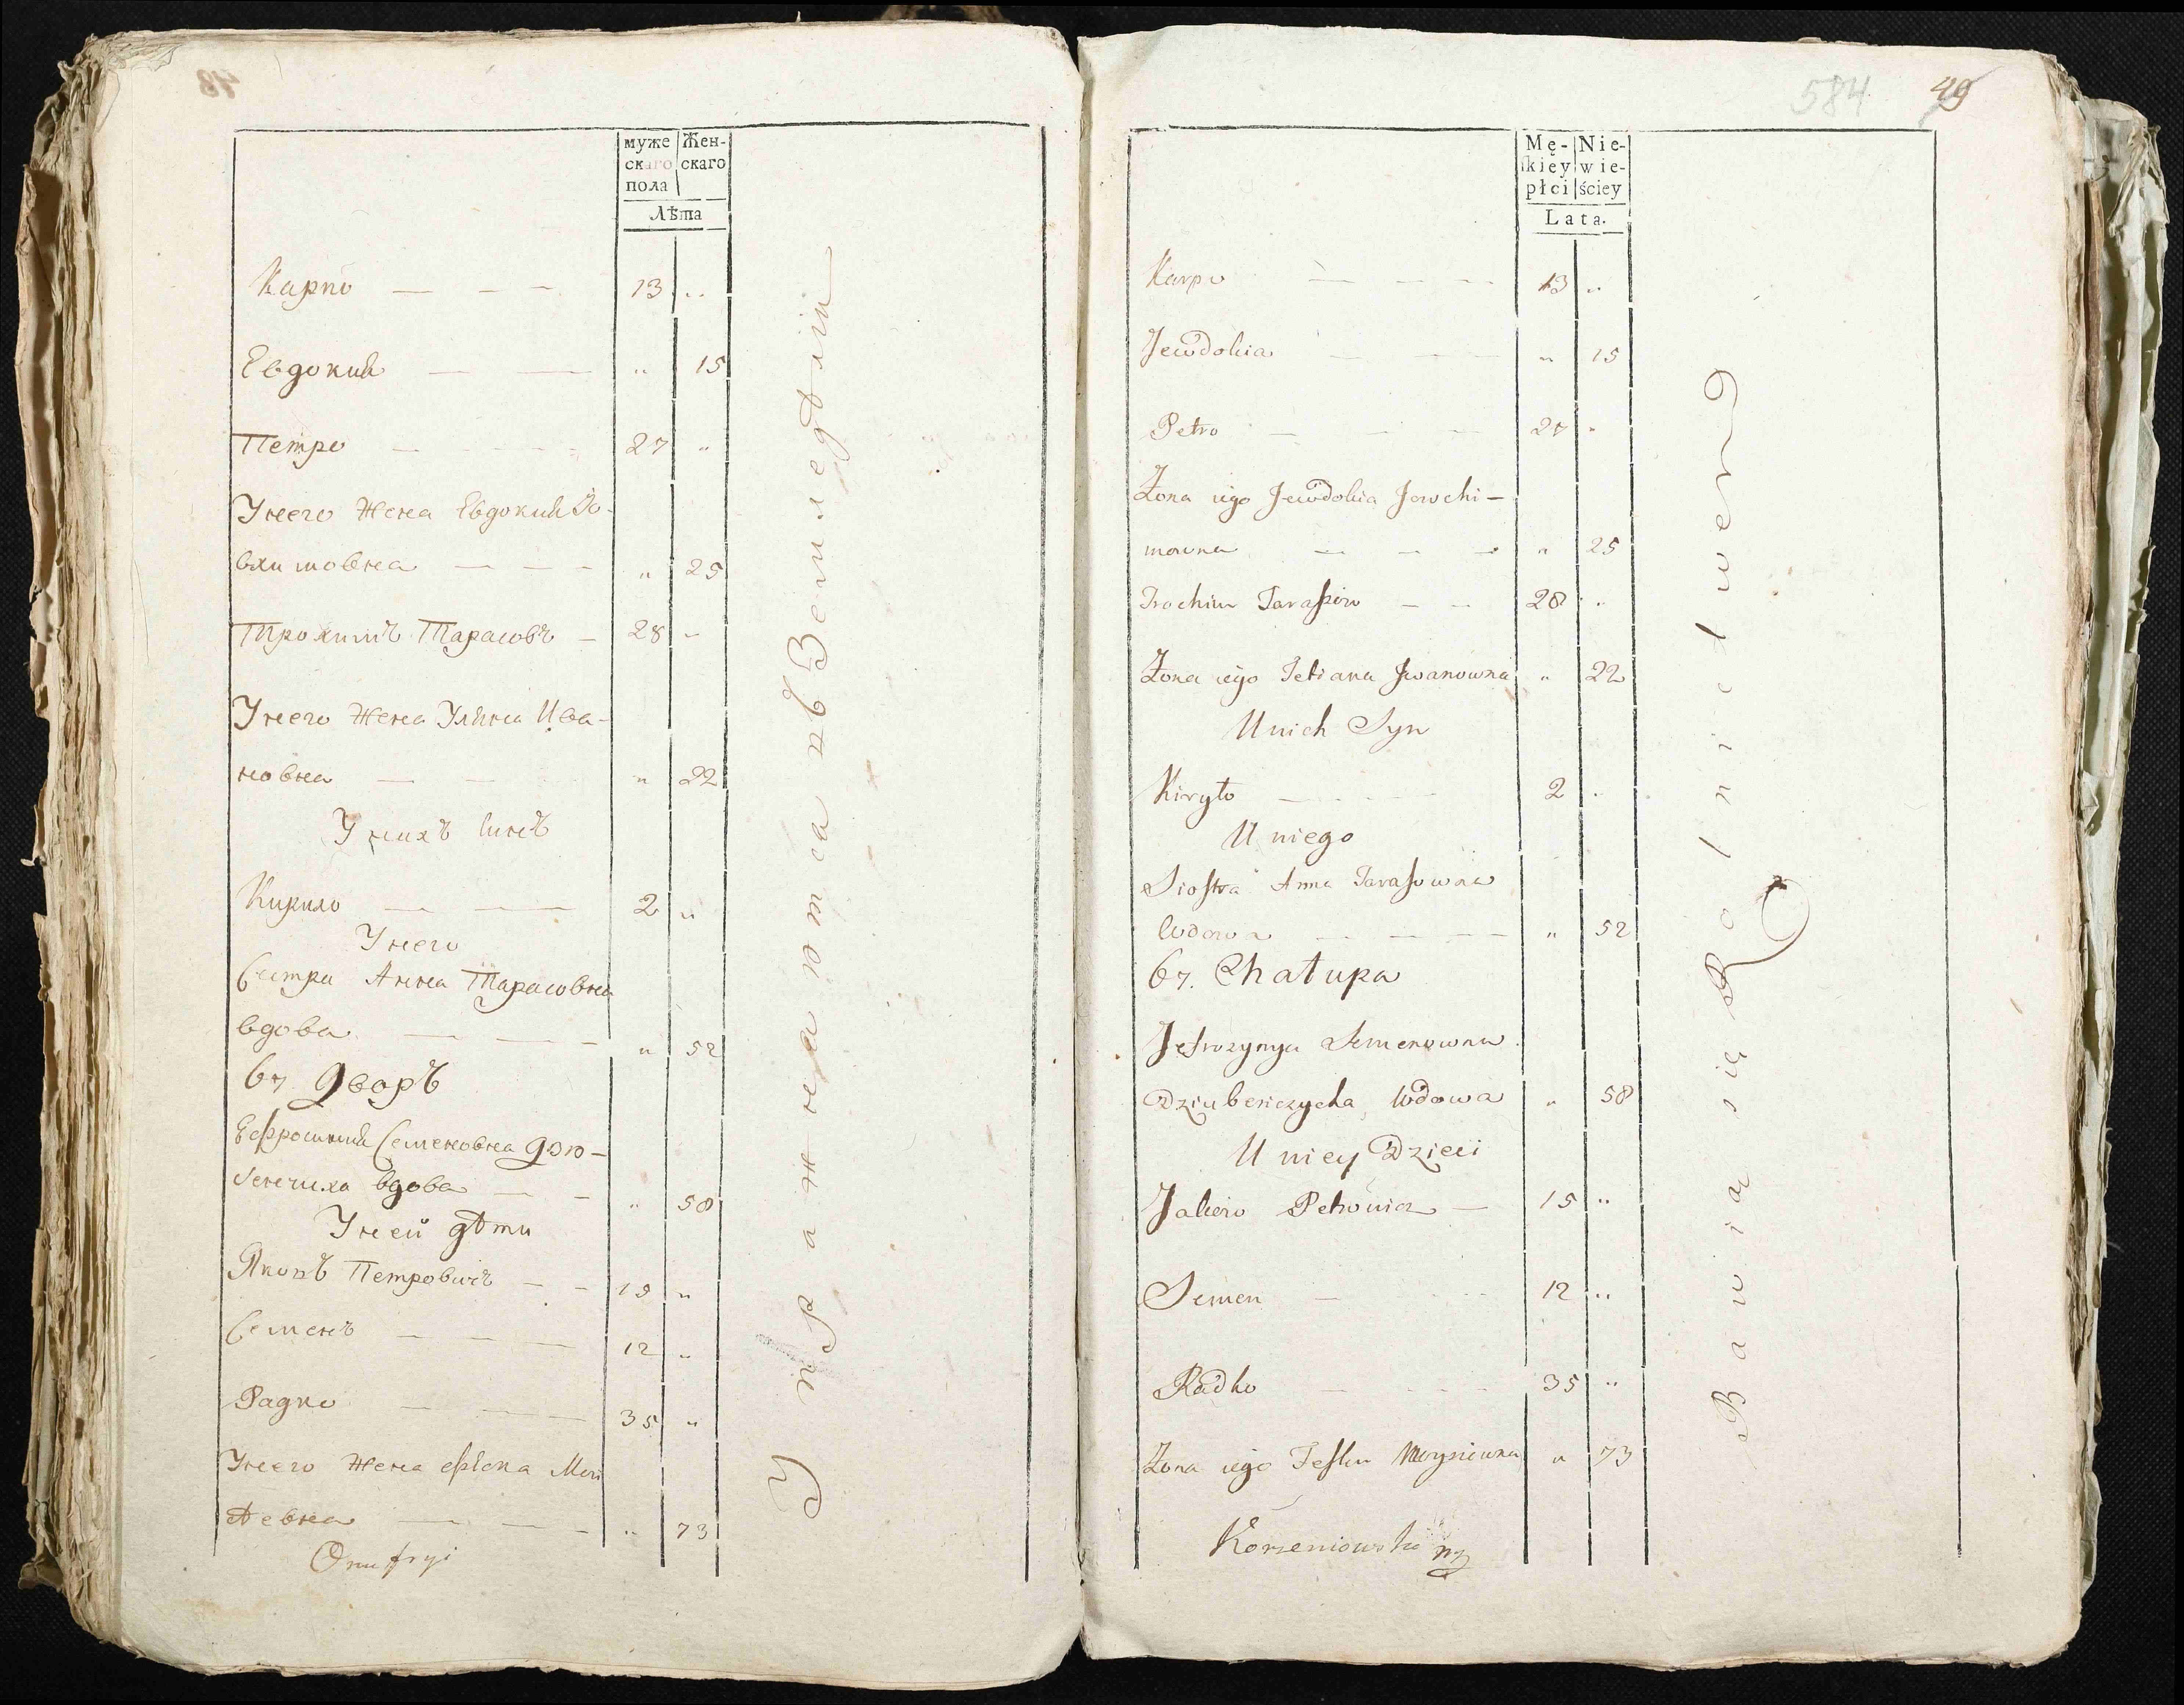 муже Жен-
скаго скаго
пола
Лѣта
Карпо — — — 13 „
Евдокия — — „ 15
Петро — — — 27 „
У него Жена Евдокия Іо-
вхимовна — — — „ 25
Трохимъ Тарасовъ — 28 „
У него Жена Улияна Ива-
новна — — „ 22
У нихъ Синъ
Кирило — — 2 „
У него
Сестра Анна Тарасовна
вдова — — — „ 52
67 Дворъ
Ефросиния Семеновна Дзю-
бенчиха вдова — — „ 58
У ней дѣти
Якопъ Петровичъ — — 15 „
Семенъ — — — 12 „
Радко — — — 35 „
У него Жена
ѣевна — — — „ 73
Onufryi
Упражняются въ Земледѣліи
584 49
Mę- Nie-
skiey wie-
płci ściey
Lata.
Karpo — — — — 13 „
Jewdokia — — — „ 15
Petro — — — 27 „
Żona iego Jewdokia Jowchi-
mowna — — — „ 25
Trochim Tarasow — — 28 „
Żona iego Tetiana Jwanowna „ 22
U nich Syn
Kiryło — — — 2 „
U niego
Siostra Anna Tarasowna
Wdowa — — — — „ 52
67. Chałupa
Jefrozynya Semenowna
Dziubenczycha Wdowa „ 58
U niey Dzieci
Jakow Petrowicz — 15 „
Semen — — — 12 „
Radko — — — — 35 „
Żona iego Teska Moysiewna „ 73
Korzeniowski mp
Bawią się Rolnictwem